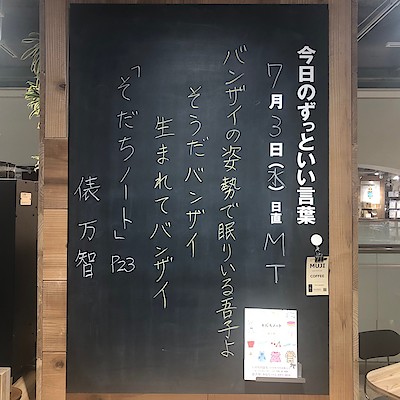 今日のずっといい言葉。
7月3日(木)日直 MT
バンザイの姿勢で眠りいる吾子よ
そうだバンザイ
生まれてバンザイ
「そだちノート」P23
俵万智
MUJI
COFFEE